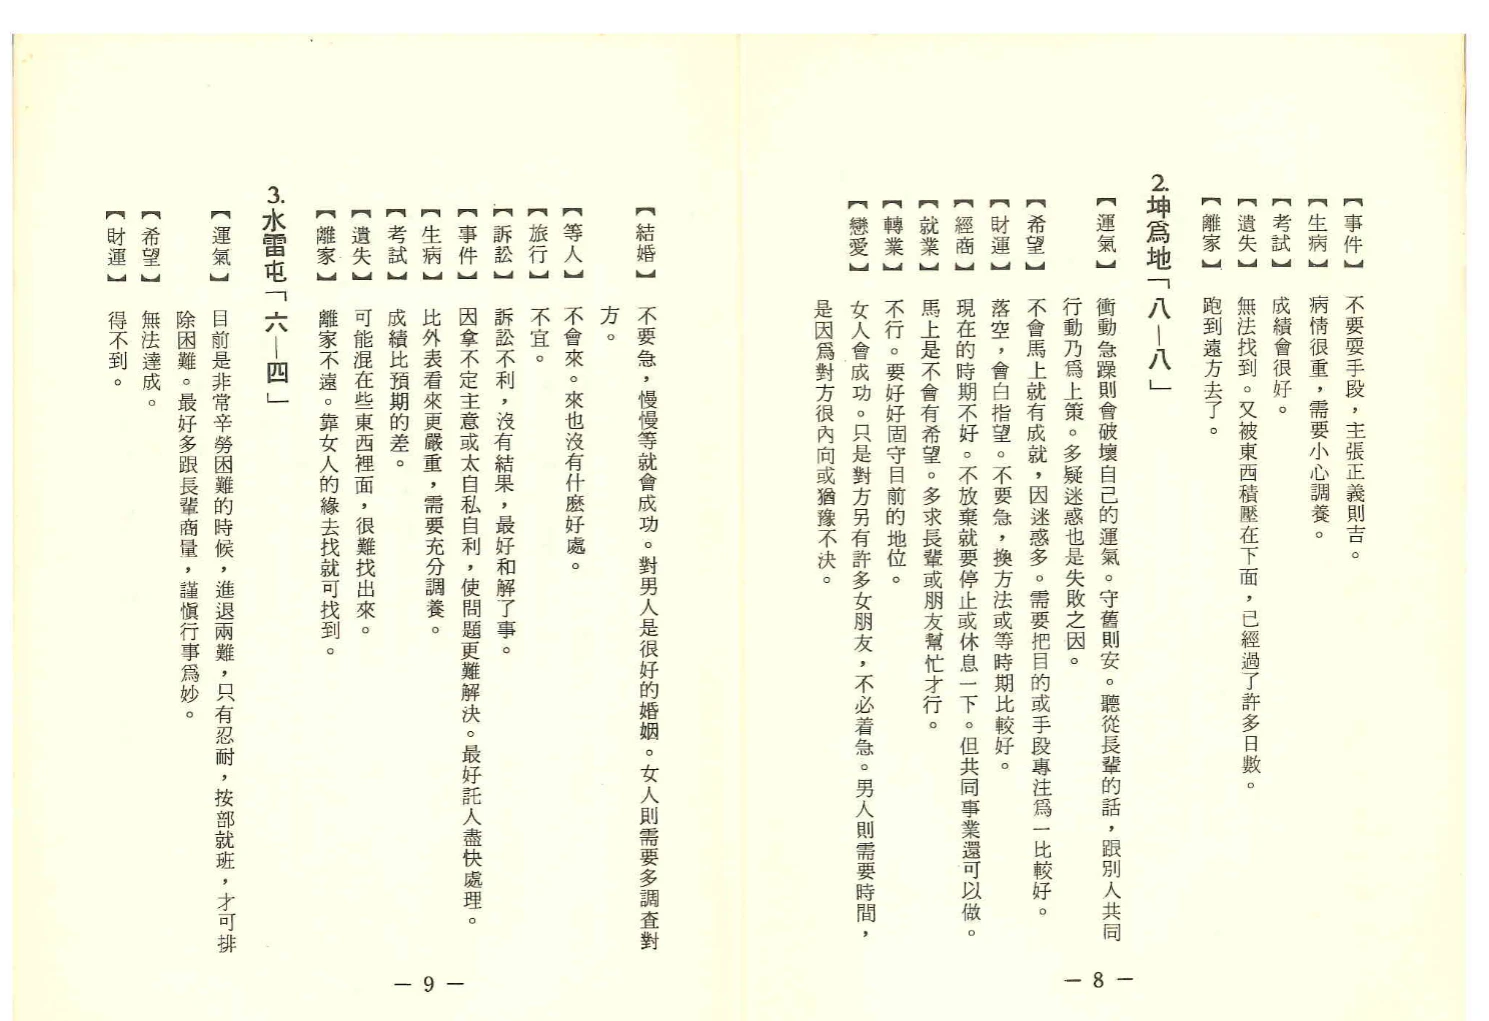 【事件】不要耍手段，主張正義則吉。
【生病】病情很重，需要小心調養。
【考試】成績會很好。
【遺失】無法找到。又被東西積壓在下面，已經過了許多日數。
【離家】跑到遠方去了。
2.坤爲地「八—八」
【運氣】衝動急躁則會破壞自己的運氣。守舊則安。聽從長輩的話，跟別人共同
行動乃爲上策。多疑迷惑也是失敗之因。
【希望】不會馬上就有成就，因迷惑多。需要把目的或手段專注爲一比較好。
【財運】落空，會白指望。不要急，換方法或等時期比較好。
【經商】現在的時期不好。不放棄就要停止或休息一下。但共同事業還可以做。
【就業】馬上是不會有希望。多求長輩或朋友幫忙才行。
【轉業】不行。要好好固守目前的地位。
【戀愛】女人會成功。只是對方另有許多女朋友，不必着急。男人則需要時間，
是因爲對方很內向或猶豫不決。
— 8 —
【結婚】不要急，慢慢等就會成功。對男人是很好的婚姻。女人則需要多調查對
方。
【等人】不會來。來也沒有什麼好處。
【旅行】不宜。
【訴訟】訴訟不利，沒有結果，最好和解了事。
【事件】因拿不定主意或太自私自利，使問題更難解決。最好託人盡快處理。
【生病】比外表看來更嚴重，需要充分調養。
【考試】成績比預期的差。
【遺失】可能混在些東西裡面，很難找出來。
【離家】離家不遠。靠女人的緣去找就可找到。
3.水雷屯「六—四」
【運氣】目前是非常辛勞困難的時候，進退兩難，只有忍耐，按部就班，才可排
除困難。最好多跟長輩商量，謹愼行事爲妙。
【希望】無法達成。
【財運】得不到。
— 9 —